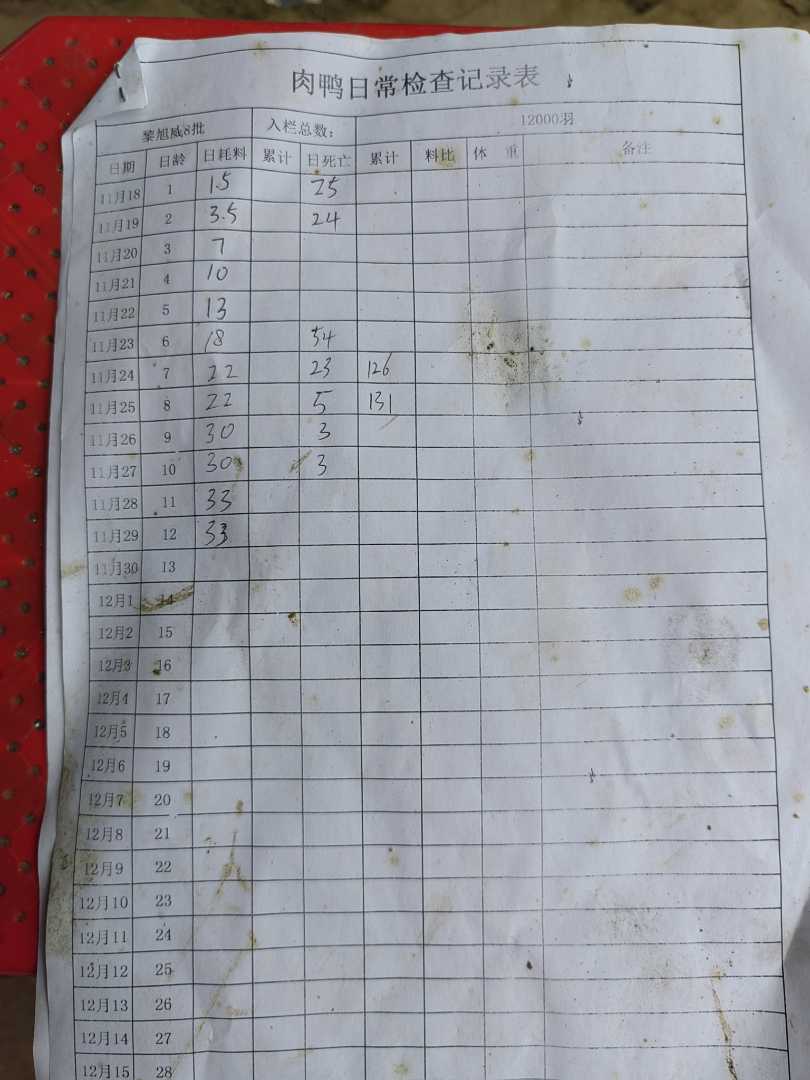 肉鸭日常检查记录表
黎旭威8批 入栏总数: 12000羽
日期 日龄 日耗料 累计 日死亡 累计 料比 体 重 备注
11月18 1 1.5 25
11月19 2 3.5 24
11月20 3 7
11月21 4 10
11月22 5 13
11月23 6 18 54
11月24 7 22 23 126
11月25 8 22 5 131
11月26 9 30 3
11月27 10 30 3
11月28 11 33
11月29 12 33
11月30 13
12月1 14
12月2 15
12月3 16
12月4 17
12月5 18
12月6 19
12月7 20
12月8 21
12月9 22
12月10 23
12月11 24
12月12 25
12月13 26
12月14 27
12月15 28